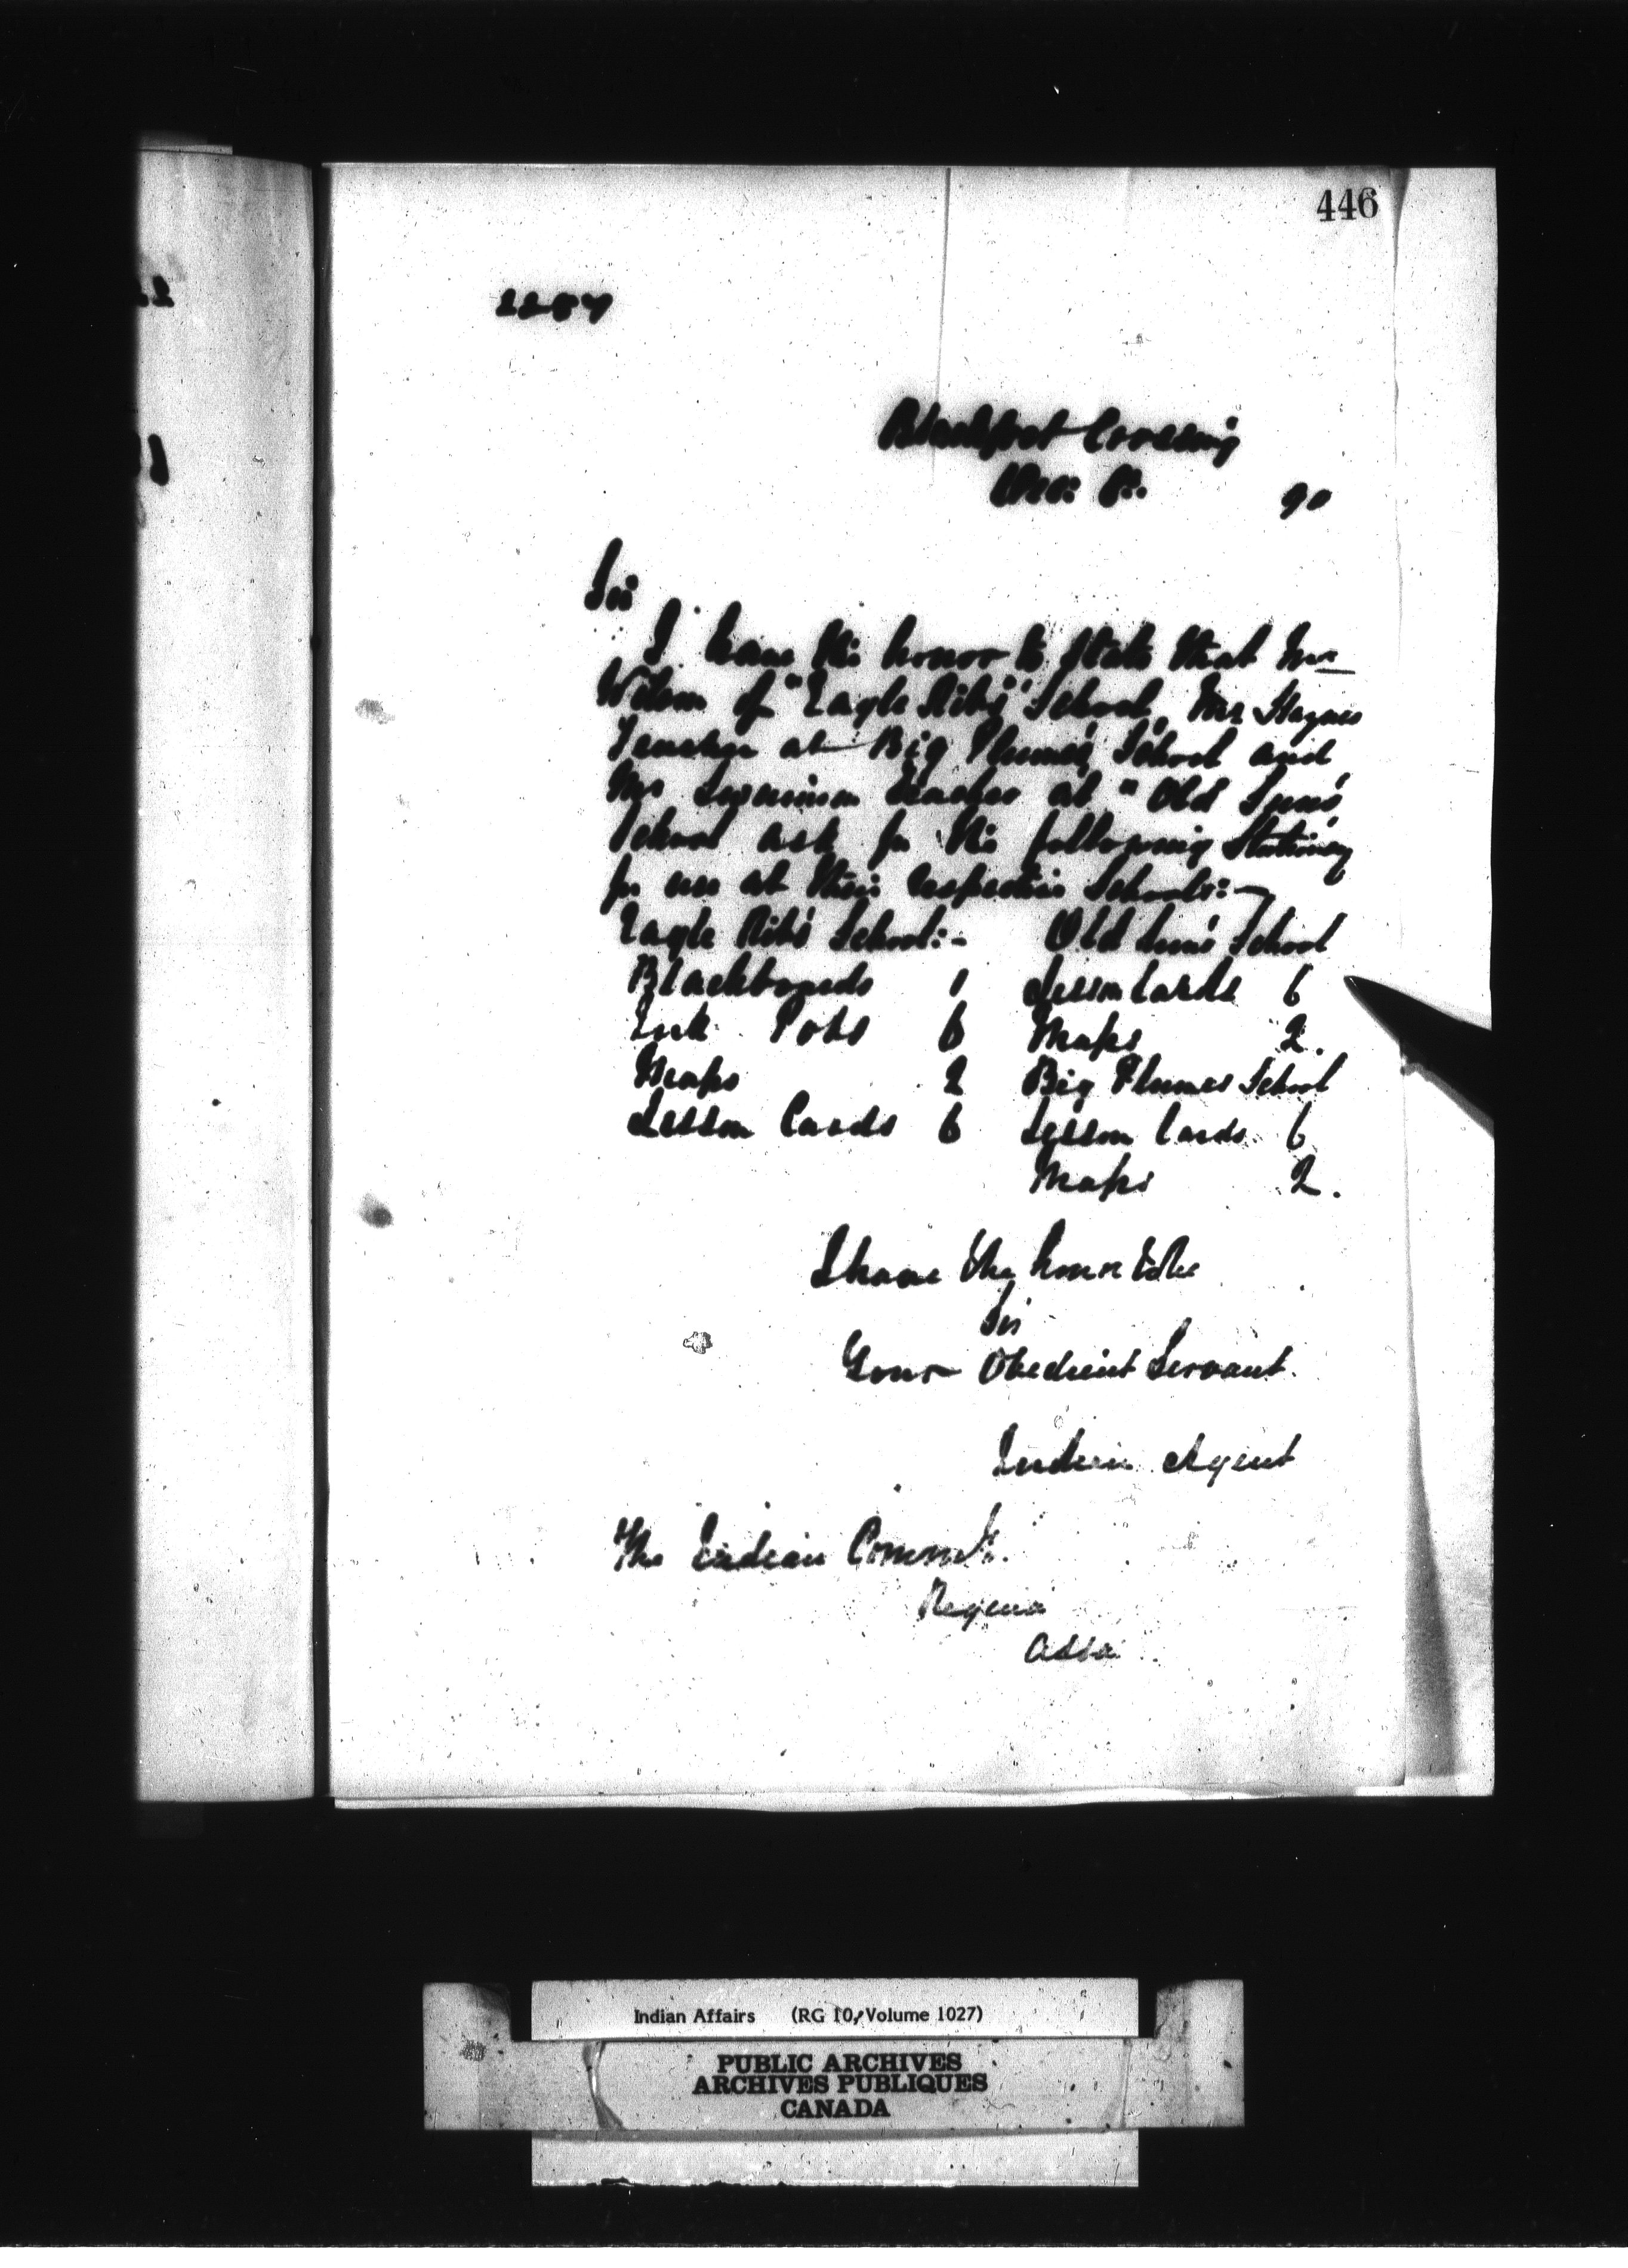 446
2287
Blackfoot Crossing
Dec: 8th 90
Sir
I have the honor to state that Mr
of "Eagle Ribs" School, Mr Haynes
Teacher at Big Plume's School and
Mr Swainson teacher at "Old Sun's
School ask for the following Stationery
for use at their respective Schools:-
Eagle Ribs' School:- Old Sun's School
Blackboards 1 Lesson Cards 6
Ink Pots 6 Maps 2.
Maps 2 Big Plumes School
Lesson Cards 6 Lesson Cards 6
Maps 2.
I have the honor to be
Sir
Your Obedient Servant.
Indian Agent
The Indian Commr.
Regina
Assa
Indian Affairs (RG 10, Volume 1027)
PUBLIC ARCHIVES
ARCHIVES PUBLIQUES
CANADA